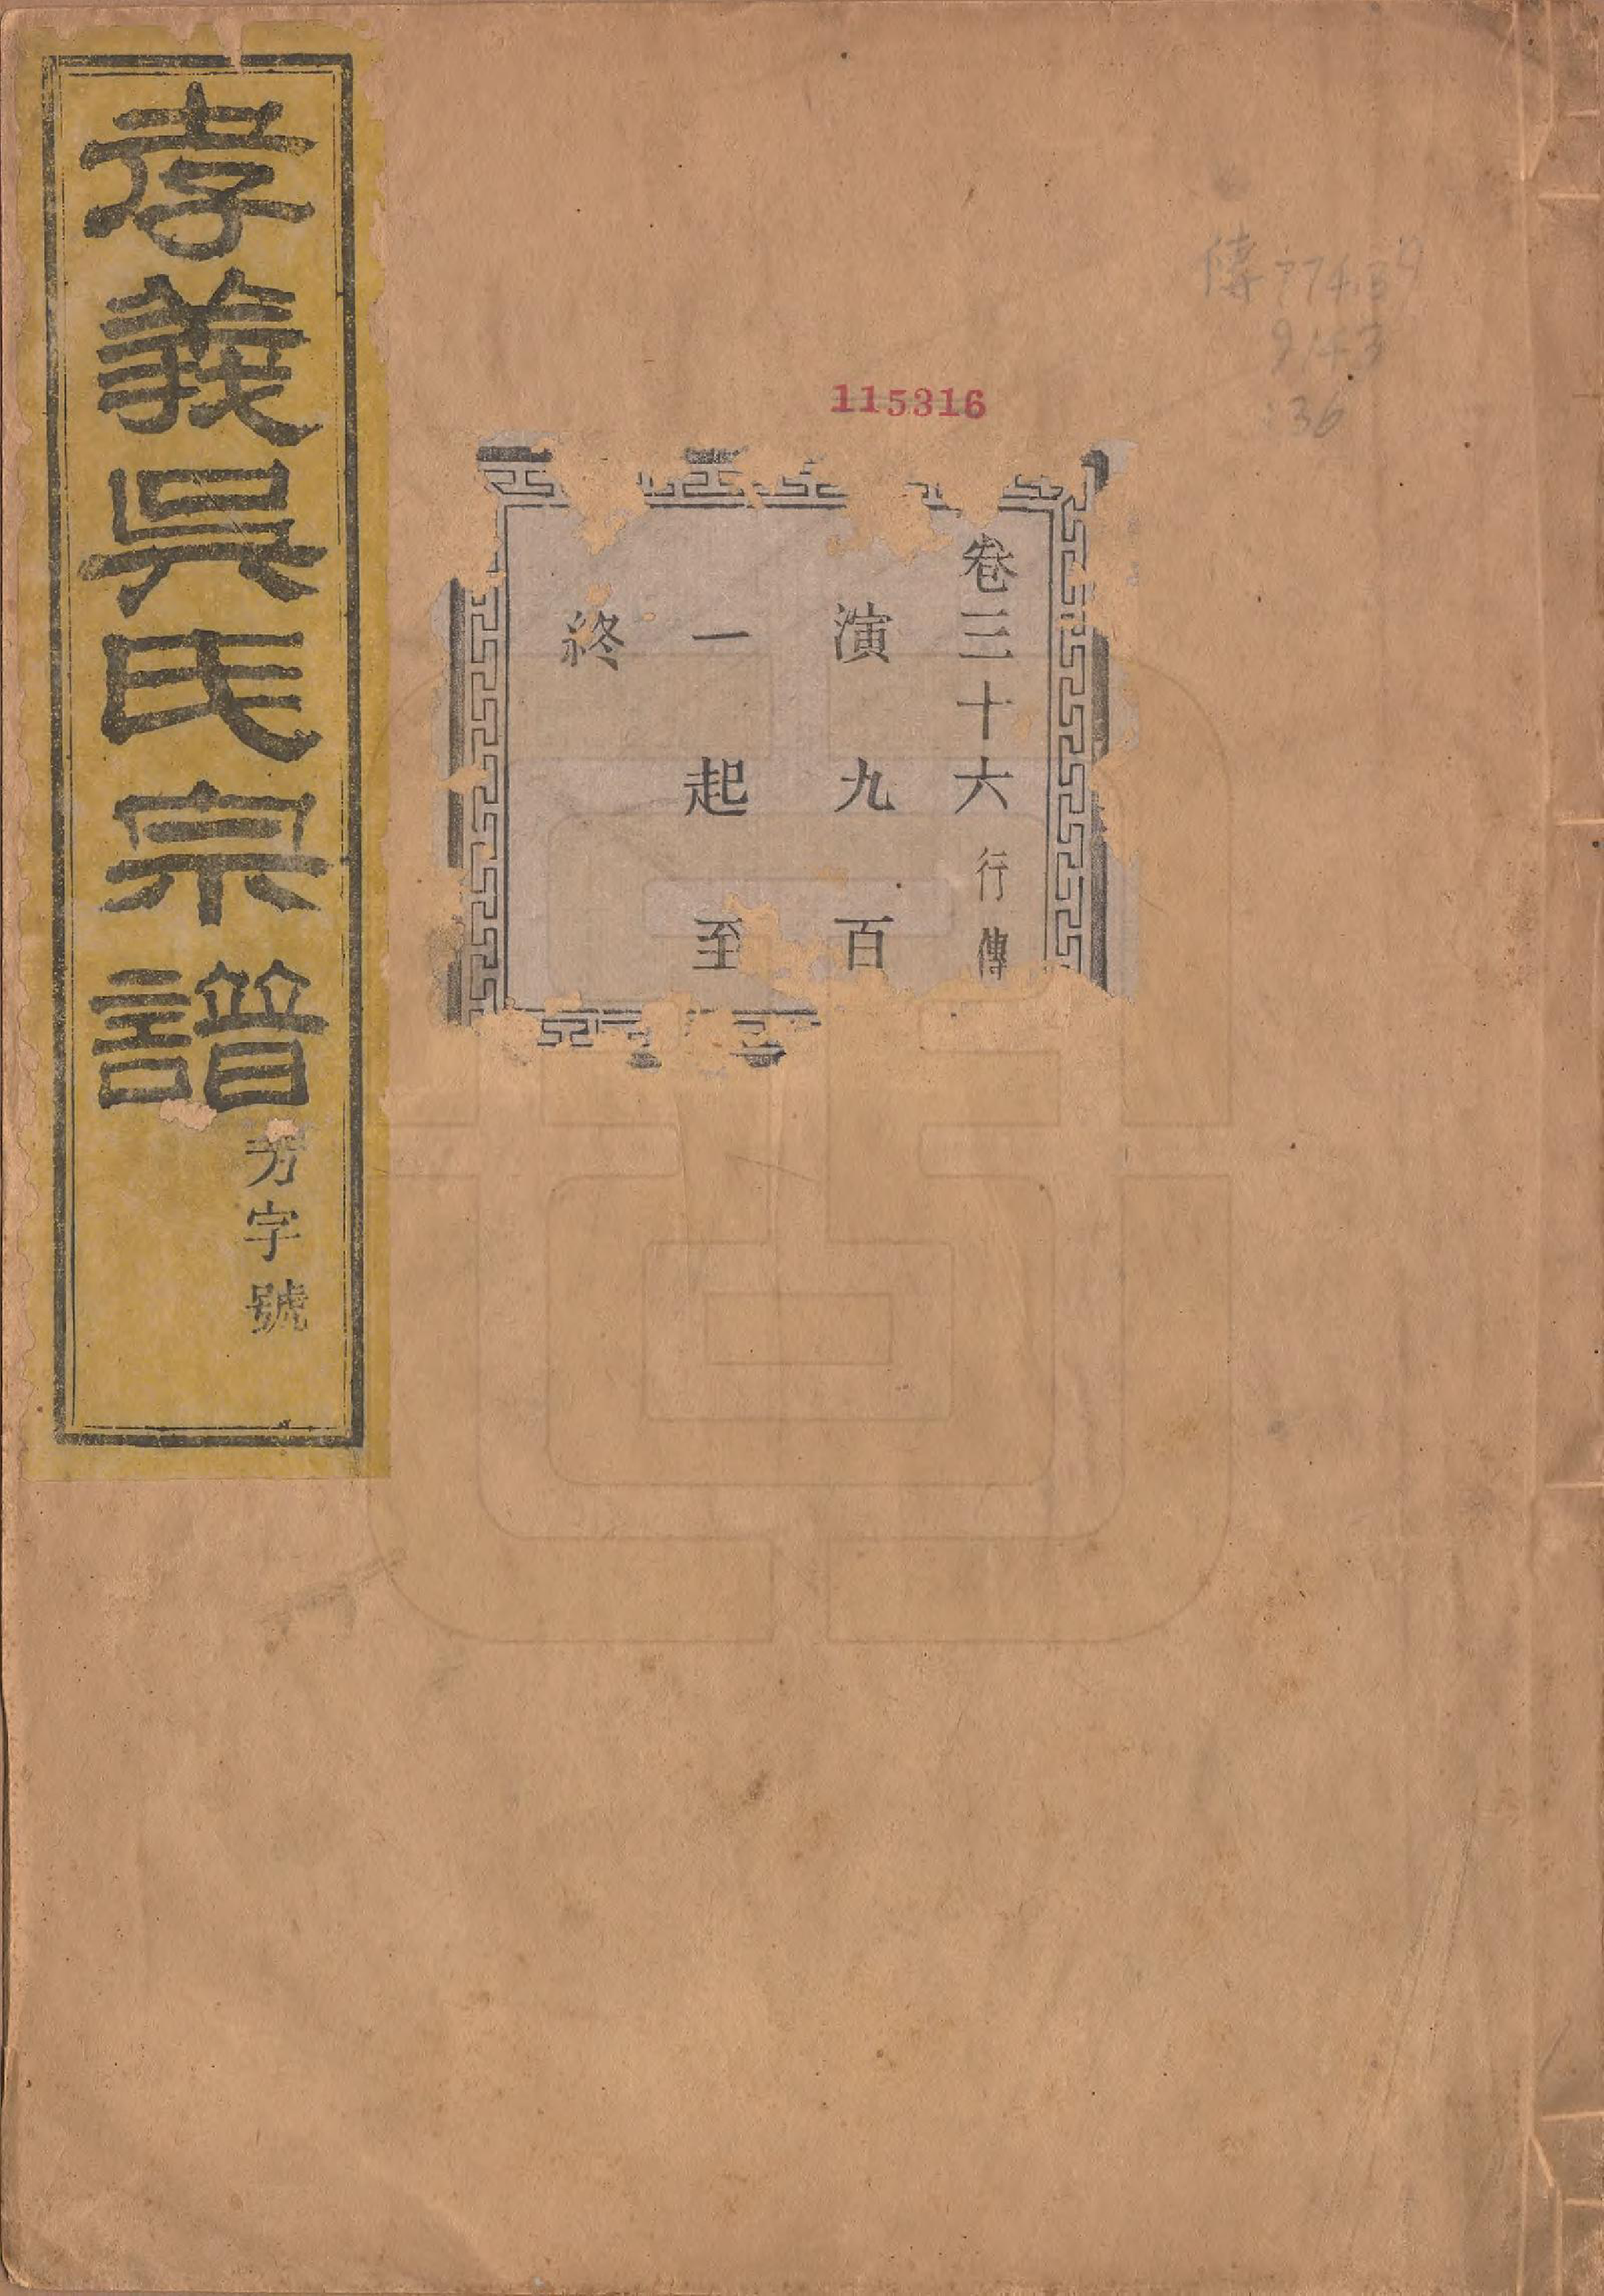 孝義吳氏宗譜
芳字號
卷三十六行傳
演九百
一起至
終
115316
傳
9143
36